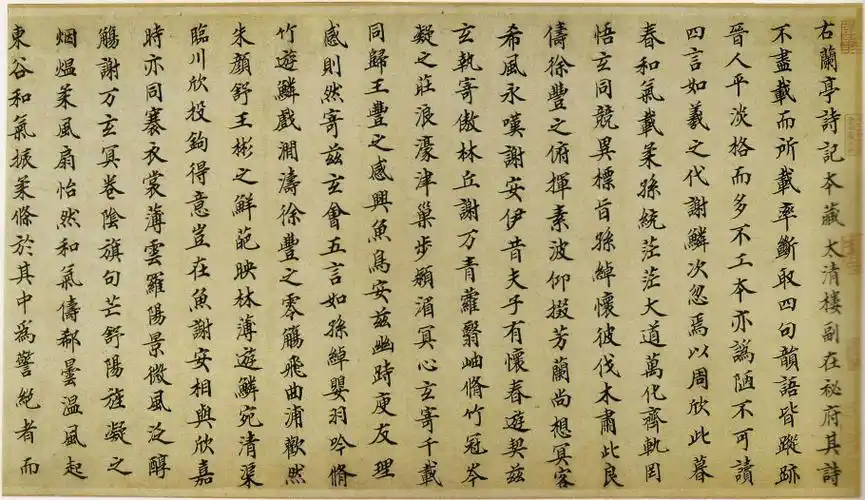 右蘭亭詩記本藏太清樓副在祕府其詩
不盡載而所載率斷取四句韻語皆蹤跡
晉人平淡格而多不工本亦譌陋不可讀
四言如羲之代謝鱗次忽焉以周欣此暮
春和氣載柔孫統茫茫大道萬化齊軌罔
悟玄同競異標旨孫綽懷彼伐木肅此良
儔徐豐之俯揮素波仰掇芳蘭尚想冥客
希風永嘆謝安伊昔夫子有懷春遊契茲
玄執寄傲林丘謝万青蘿翳岫脩竹冠岑
凝之莊浪濠津巢步潁湄冥心玄寄千載
同歸王豐之感興魚鳥安茲幽跱庾友理
感則然寄茲玄會五言如孫綽嬰羽吟脩
竹遊鱗戲澗濤徐豐之零觴飛曲浦歡然
朱顏舒王彬之鮮葩映林薄遊鱗宛清渠
臨川欣投鉤得意豈在魚謝安相與欣嘉
時亦同褰衣裳薄雲羅陽景微風泛醇
觴謝万玄冥卷陰旗句芒舒陽旌凝之
烟熅柔風扇怡然和氣儔郗曇温風起
東谷和氣振柔條於其中爲警絶者而